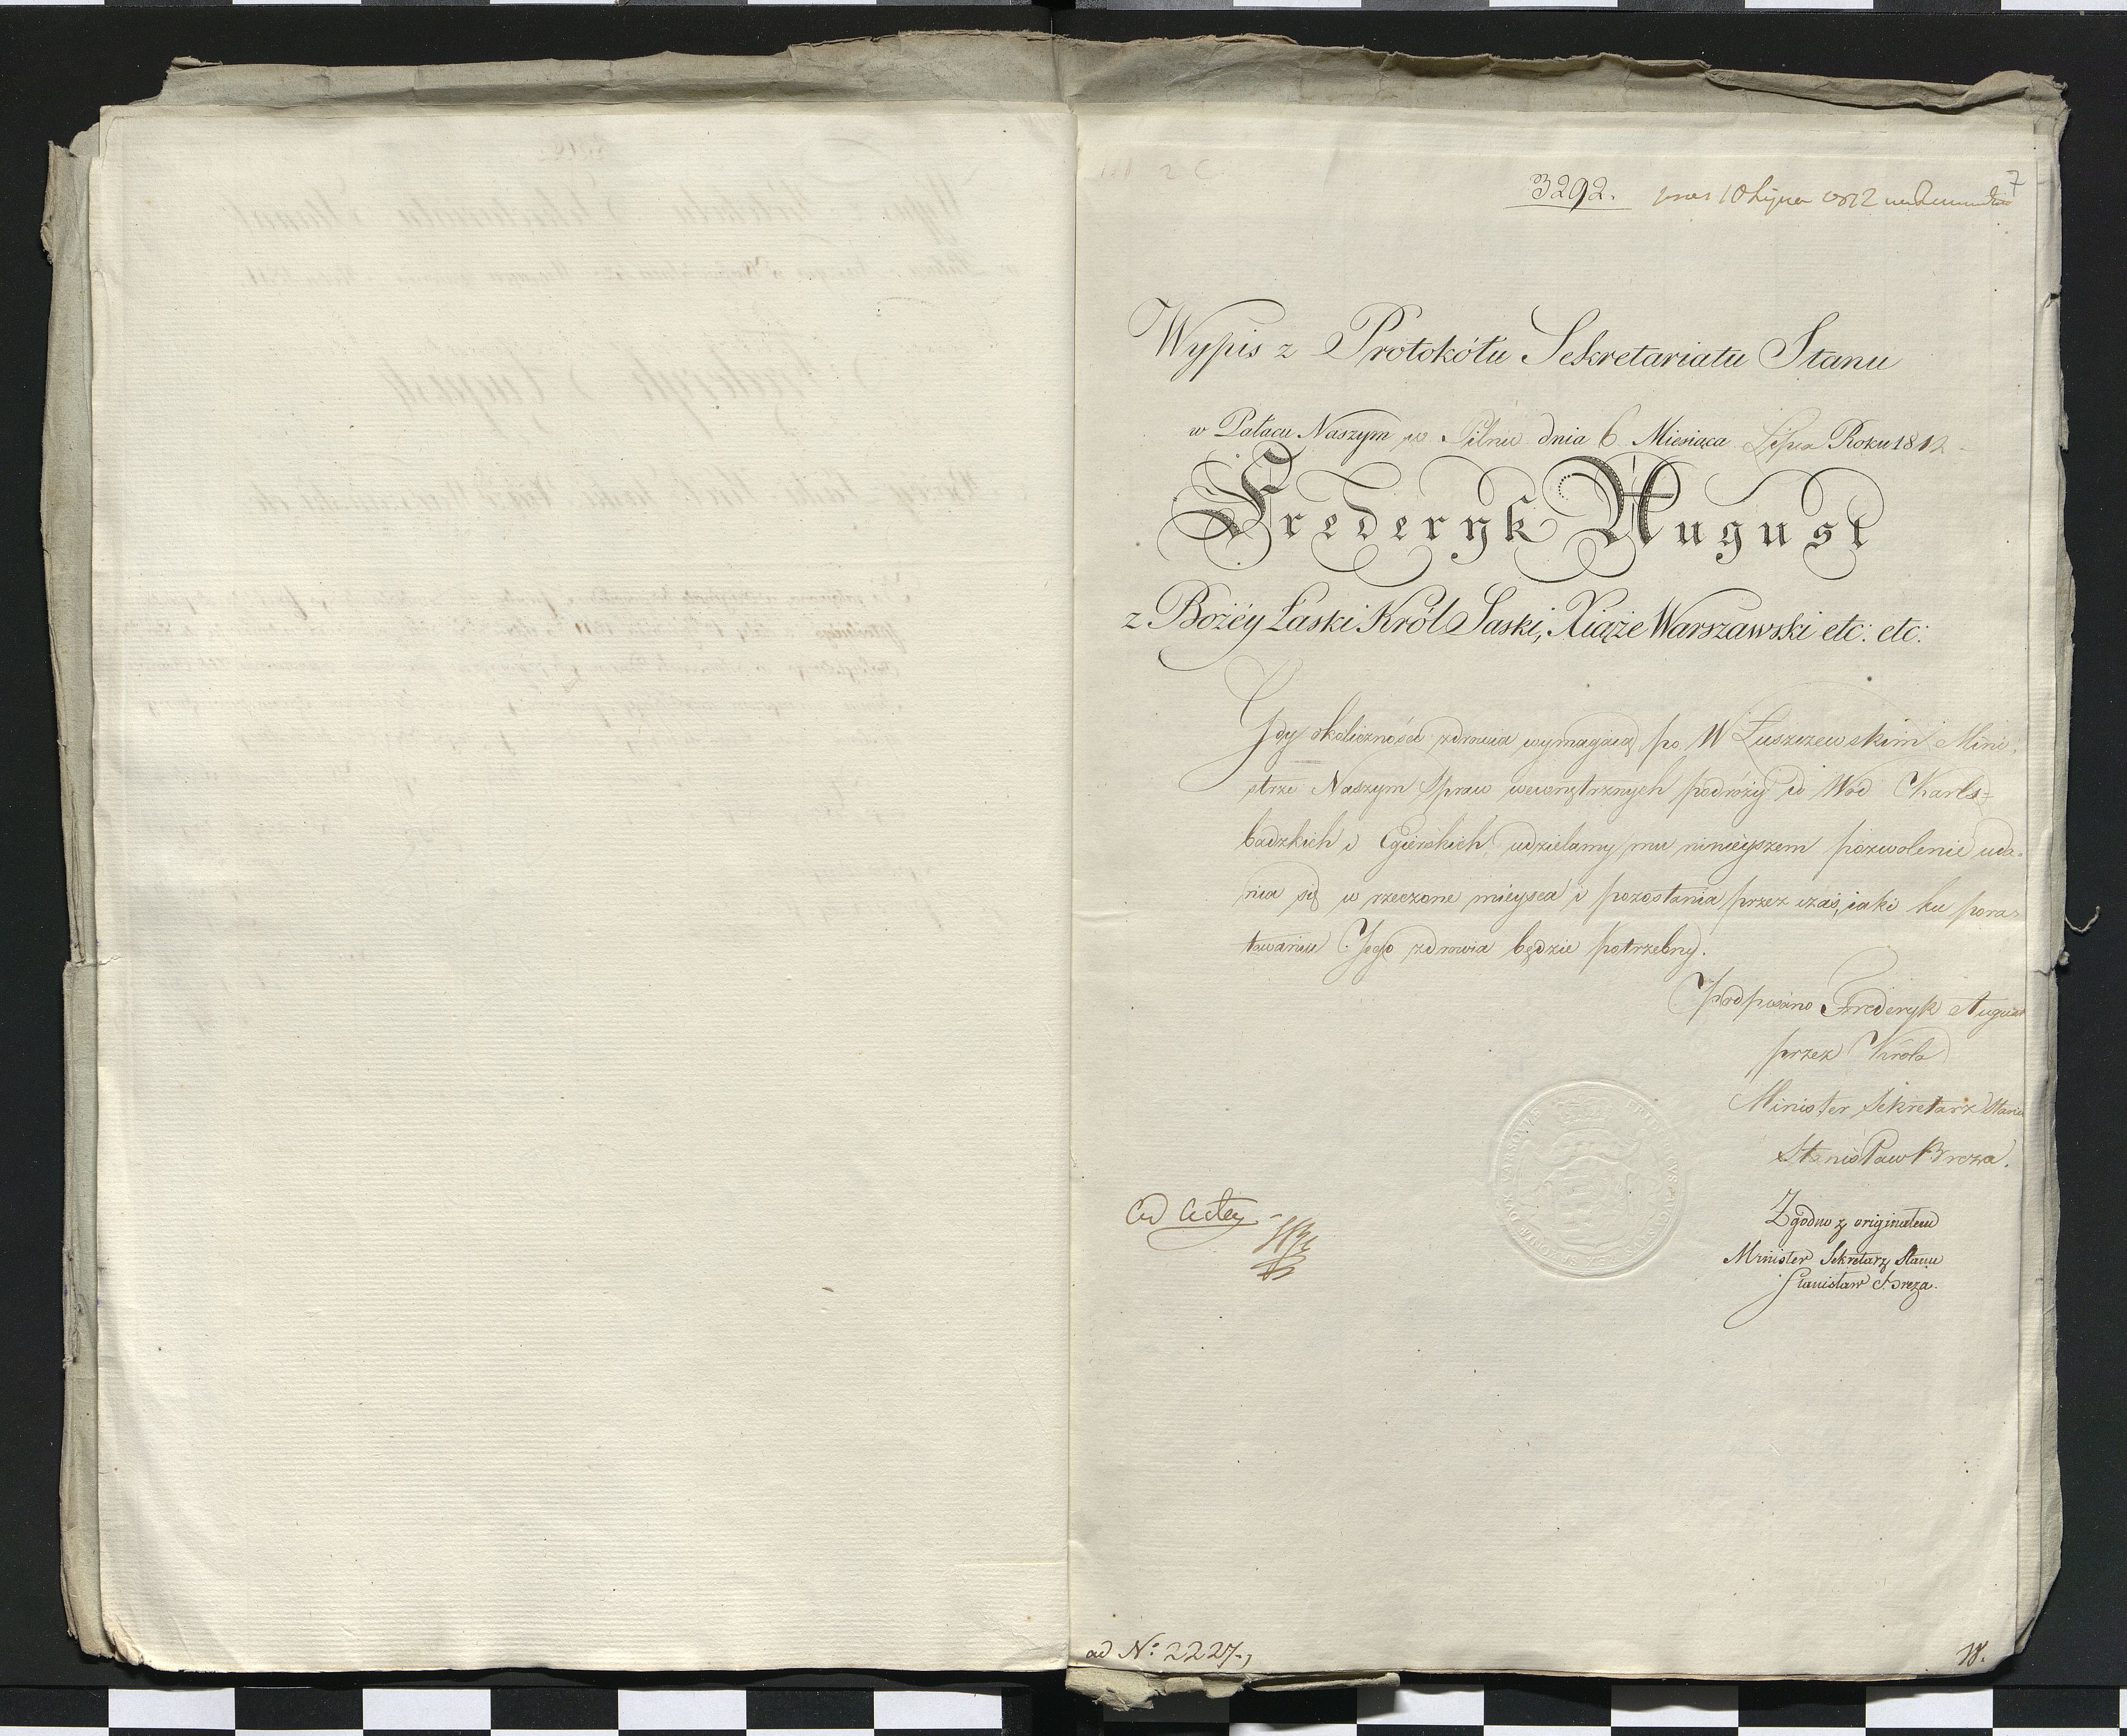 7
3292. 10 Lipca 1812
Wypis z Protokółu Sekretariatu Stanu
w Pałacu Naszym w Pilnic dnia 6 Miesiąca Lipca Roku 1812
Frederyk August
z Bożéy Łaski Król Saski, Xiąże Warszawski etc: etc:
Gdy okoliczności zdrowia wymagaią po W Łuszczewskim Mini-
strze Naszym Spraw wewnętrznych podróży do Wód Karls=
badzkich i Egierskich, udzielamy mu ninieyszem pozwolenie uda-
nia się w rzeczone mieysca i pozostania przez czas, iaki ku pora-
towaniu Jego zdrowia będzie potrzebny.
Podpisano Frederyk August
przez Króla
Minister Sekretarz Stanu
Stanisław Breza.
Zgodno z originałem
Minister Sekretarz Stanu
Stanisław Breza.
ad acta
ad No: 2227.
W.